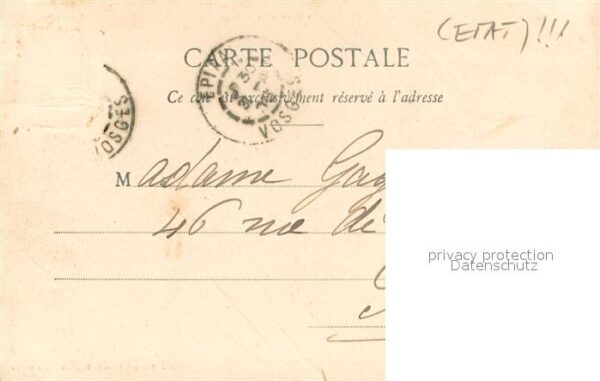 (ETAT)!!!
CARTE POSTALE
Ce côté est exclusivement réservé à l'adresse
EPINAL
VOSGES
VOSGES
Madame
46 rue de
privacy protection
Datenschutz